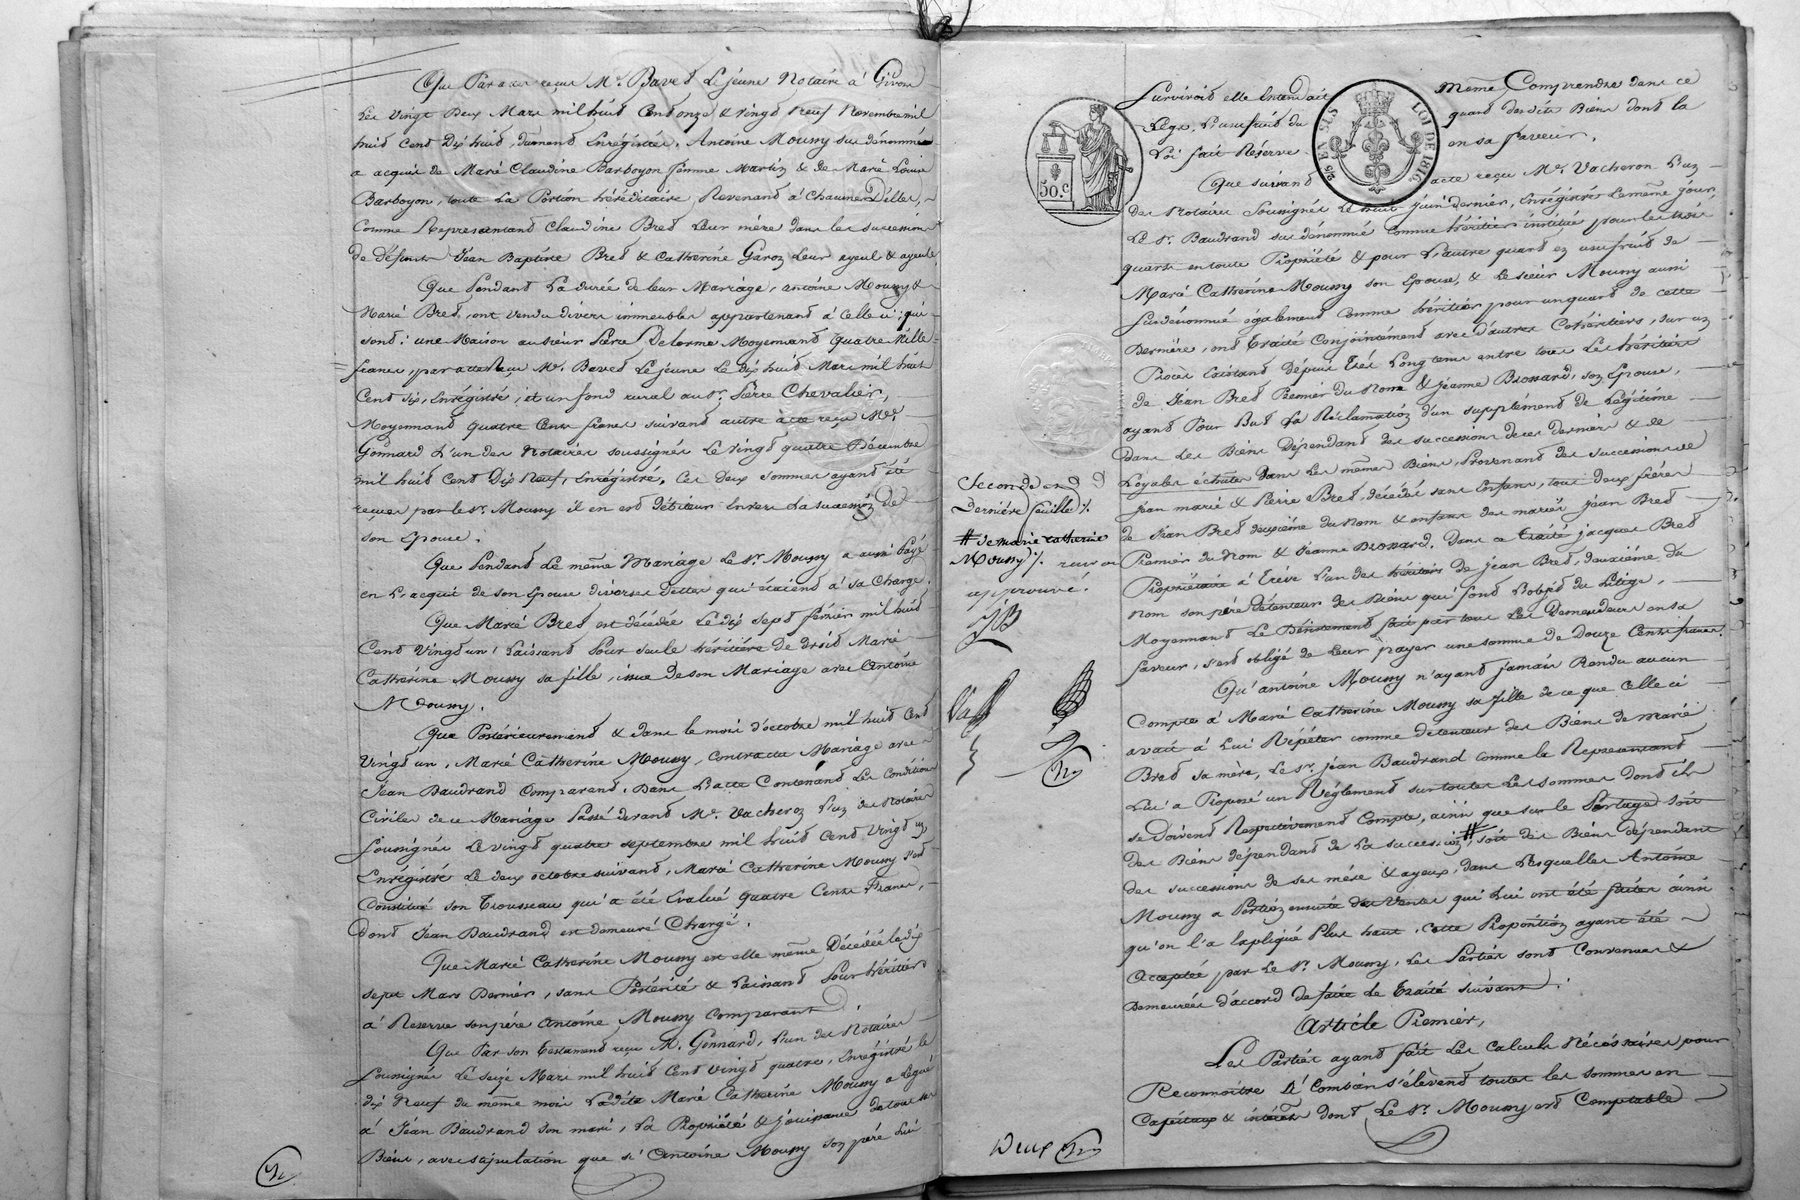 Que Par acte reçu Mr. Baved Le jeune Notaire à Givors
Les Vingt Deux Mars mil huit Cent onze & Vingt Neuf Novembre mil
huit Cent Dix huit, dument Enrégistrés, Antoine Moussy sus dénommé
a acquis de Marie Claudine Barboyon femme Martin & de Marie Louise
Barboyon, toute La Portion héréditaire, Revenand à Chacune D'elles,
Comme Representand Claudine Bred Leur mère dans les successions
de défunts Jean Baptiste Bred & Catherine Garoz Leur ayeul & ayeule.
Que Pendand La durée de leur Mariage, antoine Moussy &
Marie Bred, ont Vendu divers immeubles appartenand à Celle ci; qui
sont: une Maison au sieur Pierre Delorme Moyennand Quatre Mille
francs, par acte Reçu Mr. Baved Le jeune Le dix huit Mars mil huit
Cent dix, Enrégistré, et un fond rural au Sr. Pierre Chevalier,
Moyennand Quatre Cents francs suivand autre acte reçu Me.
Gonnard L'un des Notaires soussignés Le Vingt quatre Décembre
mil huit Cent Dix Neuf, Enrégistré, Ces deux sommes ayand été
reçues par le Sr. Moussy il en est débiteur Envers La succession de
son Epouse.
Que Pendand Le même Mariage Le Sr. Moussy a aussi Payé
en L'acquit de son Epouse diverses Dettes qui étaiend à sa Charge.
Que Marie Bred est décédée Le dix sept février mil huit
Cent Vingt un, Laissand Pour seule héritière de droit Marie
Catherine Moussy sa fille, issue De son Mariage avec Antoine
Moussy.
Que Postérieuremend & dans le mois d'octobre mil huit Cent
Vingt un, Marie Catherine Moussy, Contracta Mariage avec
Jean Baudrand Comparand. Dans L'acte Contenand Les Conditions
Civiles de ce Mariage Passé devand Me. Vacheroz L'uz des Notaires
soussignés Le vingt quatre septembre mil huit Cent Vingt uz,
Enrégistré Le deux octobre suivand, Marie Catherine Moussy s'est
Constitué son Trousseau qui a été Evalué Quatre Cents Francs,
dond Jean Baudrand est demeuré Chargé.
Que Marie Catherine Moussy est elle même Décédée le dix
sept Mars Dernier, sans Postérité & Laissand Pour héritier
à Reserve son père Antoine Moussy Comparant.
Que Par son Testamend reçu M. Gonnard, L'un des Notaires
soussignés Le seize Mars mil huit Cent Vingt quatre, Enrégistré le
dix Neuf du même mois Ladite Marie Catherine Moussy a Légué
à Jean Baudrand son mari, La Propriété & Jouissance de tous ses
Biens, avec stipulation que si Antoine Moussy son père lui
Surviroit elle Entendait même Comprendre dans ce
Legs, L'usufruit du quart desdits Biens dont la
Loi fait Réserve en sa faveur.
50.C
2/5 EN SUS LOI DE 1816
Que suivand acte reçu Mr. Vacheron L'uz
des Notaires Soussignés Le huit juin dernier, Enrégistré Le même jour,
Le Sr. Baudrand sus dénommé Comme héritier institué pour les trois
quarts en toute Propriété & pour L'autre quart en usufruit de
Marie Catherine Moussy son Epouse, & Le sieur Moussy aussi
Susdénommé également Comme héritier pour un quart de Cette
Dernière, ont Traité Conjointement avec d'autres Cohéritiers, sur uz
Procès Existand Depuis Très Longtems entre tous Les héritiers
de Jean Bred Premier du Nom & Jeanne Brossard, son Epouse,
ayand Pour But La Réclamation d'un supplément de Légitime
Dans Les Biens Dépendand des successions de ces derniers & de
Loyales échutes Dans Les mêmes Biens, Provenand des successions de
jean marie & Pierre Bred, décédés sans Enfans, tous deux frères
de Jean Bred deuxième du Nom & enfans des mariés Jean Bred
Premier du Nom & Jeanne Brossard. Dans ce Traité jacques Bred
Propriétaire à Trèves L'un des héritiers de Jean Bred, deuxième du
Nom son père Détenteur des Biens qui font L'objet du Litige,
Moyennand Le Désistemend fait par tous Les Demandeurs en sa
faveur, s'est obligé de Leur payer une somme de Douze Cents francs.
Qu'antoine Moussy n'ayand jamais Rendu aucun
Compte à Marie Catherine Moussy sa fille de ce que Celle ci
avait à Lui Répéter Comme détenteur des Biens de Marie
Bred sa mère, Le Sr. jean Baudrand comme la Représentand
Lui a Proposé un Réglement sur toutes Les sommes dont ils
se doivend Respectivement Compte, ainsi que sur le Partage soit
des Biens dépendand de La succession #, soit des Biens dépendant
des successions de ses mère & ayeux, dans Lesquelles Antoine
Moussy a Portion ensuite des Ventes qui Lui ont été faites ainsi
qu'on l'a Expliqué Plus haut. Cette Proposition ayant été
Acceptée par Le Sr. Moussy, Les Parties sont Convenues &
Demeurées d'accord de faire Le Traité suivant.
Article Premier,
Les Parties ayand fait Les Calculs Nécessaires pour
Reconnoitre à Combien s'élèvend toutes Les sommes en
Capitaux & intérêts dond Le Sr. Moussy est Comptable
Seconde and
Dernière feuille /.
# de marie catherine
Moussy /. renvoi
approuvé.
JB
Deux